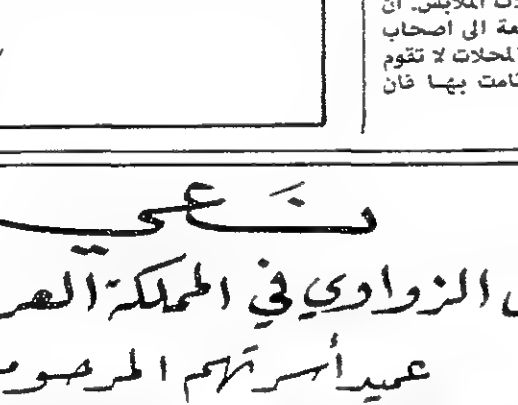 ـدات الملابس. ان
ـعة الى اصحاب
لمحلات لا تقوم
قامت بها فان
نعي
ل الزواوي في المملكة العر
عميد أسرتهم المرحوم